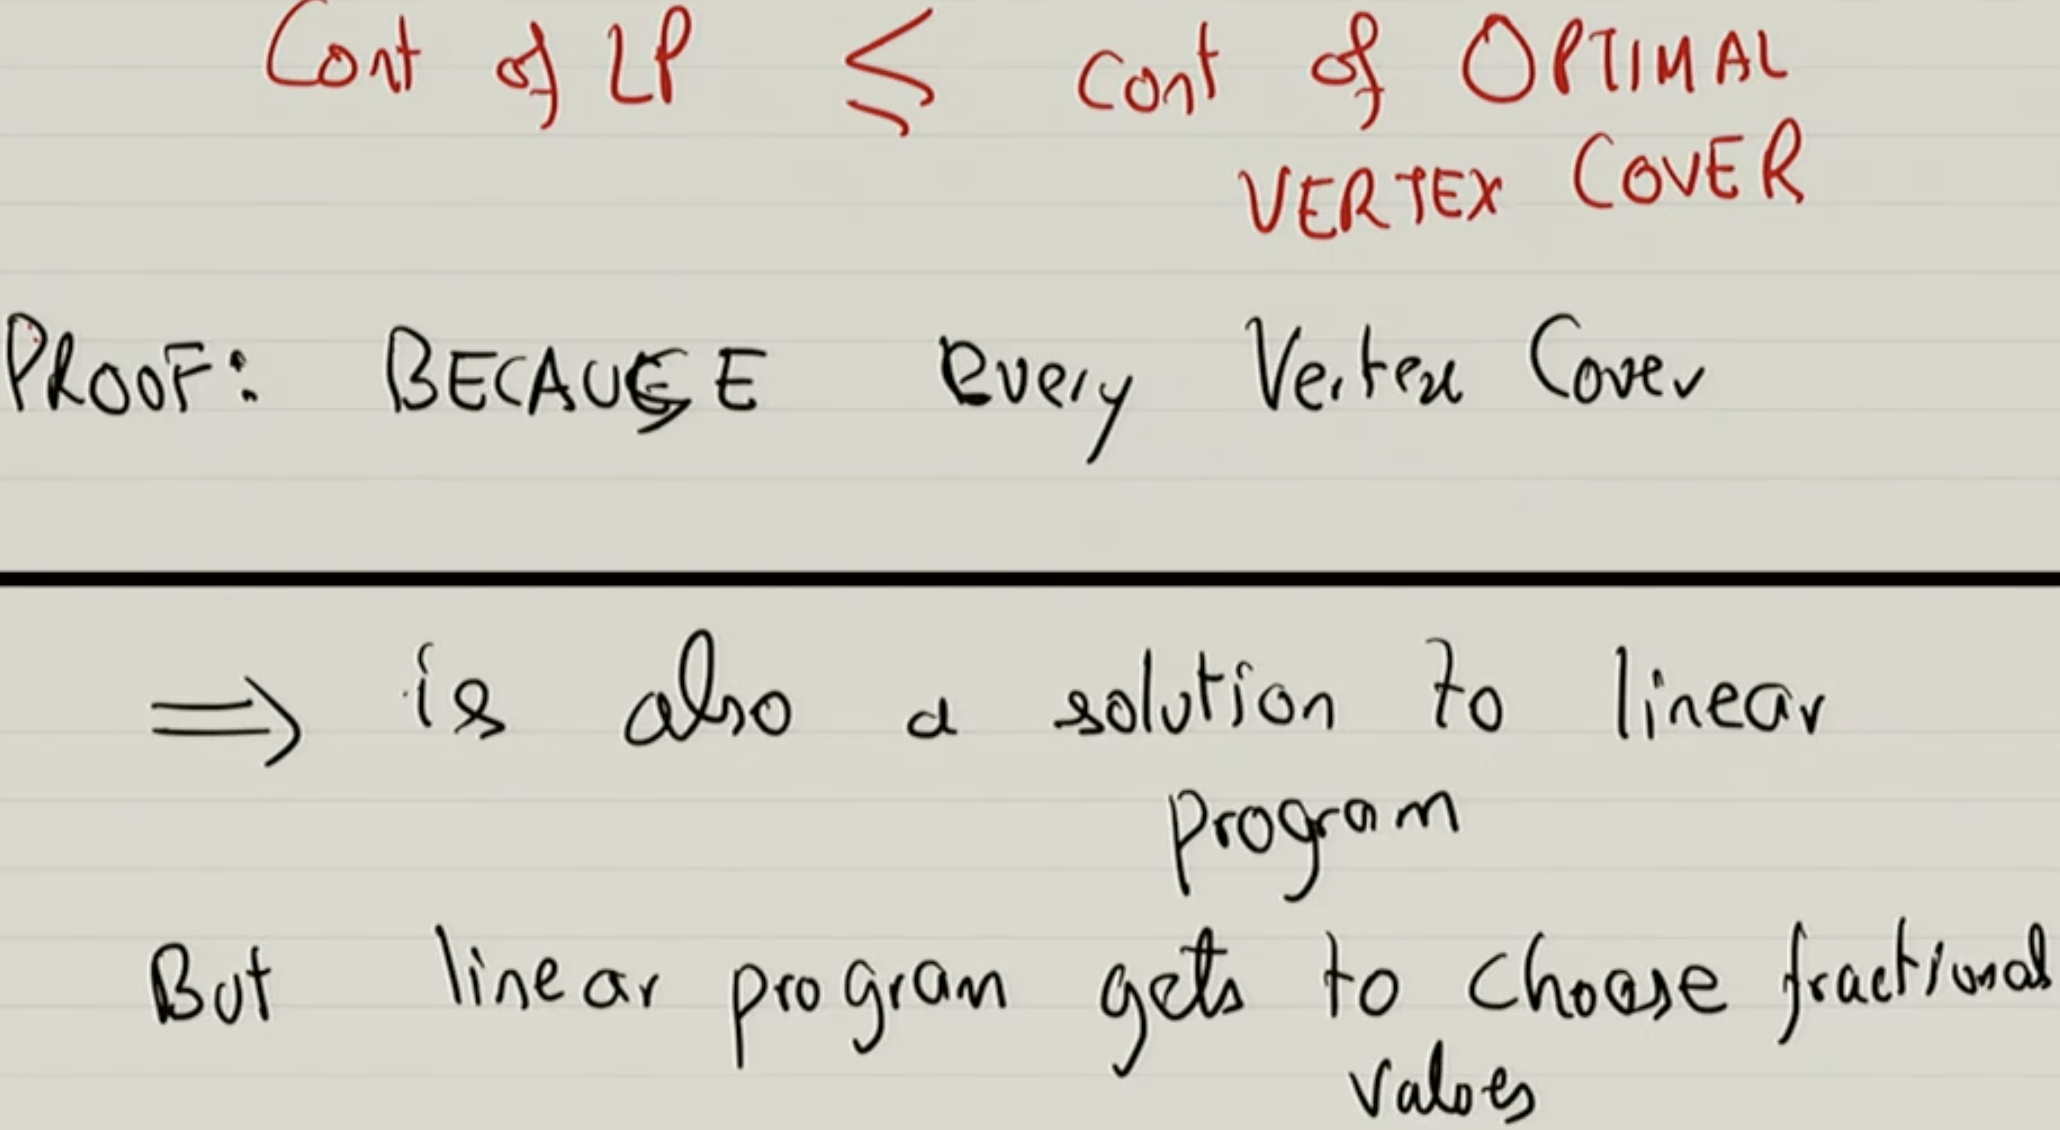 Cost of LP ≤ cost of OPTIMAL
VERTEX COVER
PROOF: BECAUSE every Vertex Cover
⟹ is also a solution to linear
program
But linear program gets to choose fractional
values